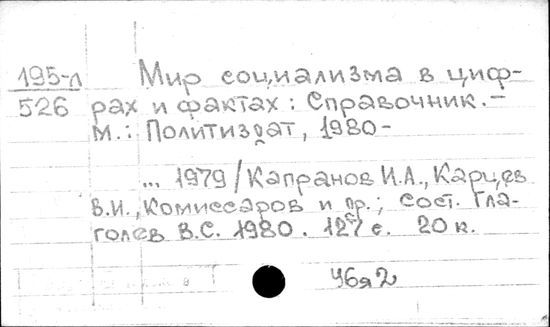 195-л Мир социализма в циф-
526 рах и фактах: Справочник.-
М.: Политиздат, 1980-
... 1979/Капранов И.А., Карцев
В.И., Комиссаров и др.; сост. Гла-
голев В.С. 1980. 127 с. 20 к.
У6я2